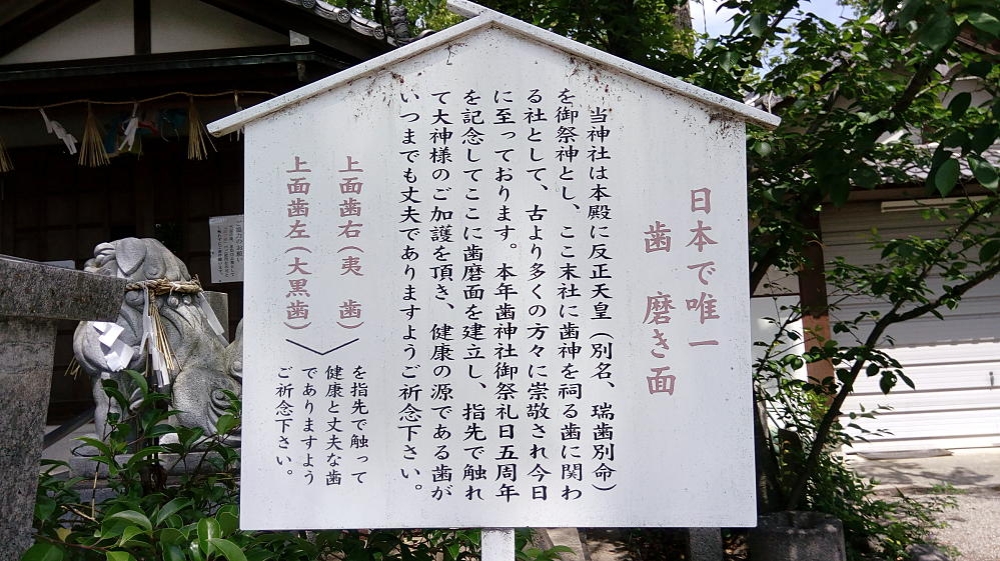 日本で唯一
歯 磨き面
当神社は本殿に反正天皇（別名、瑞歯別命）
を御祭神とし、ここ末社に歯神を祠る歯に関わ
る社として、古より多くの方々に崇敬され今日
に至っております。本年歯神社御祭礼日五周年
を記念してここに歯磨面を建立し、指先で触れ
て大神様のご加護を頂き、健康の源である歯が
いつまでも丈夫でありますようご祈念下さい。
上面歯右（夷 歯）
上面歯左（大黒歯）
を指先で触って
健康と丈夫な歯
でありますよう
ご祈念下さい。